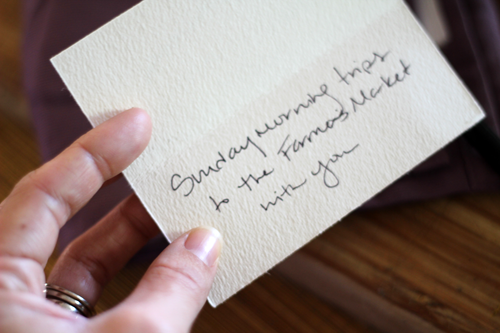 Sunday Morning trips
to the Farmer's Market
with you